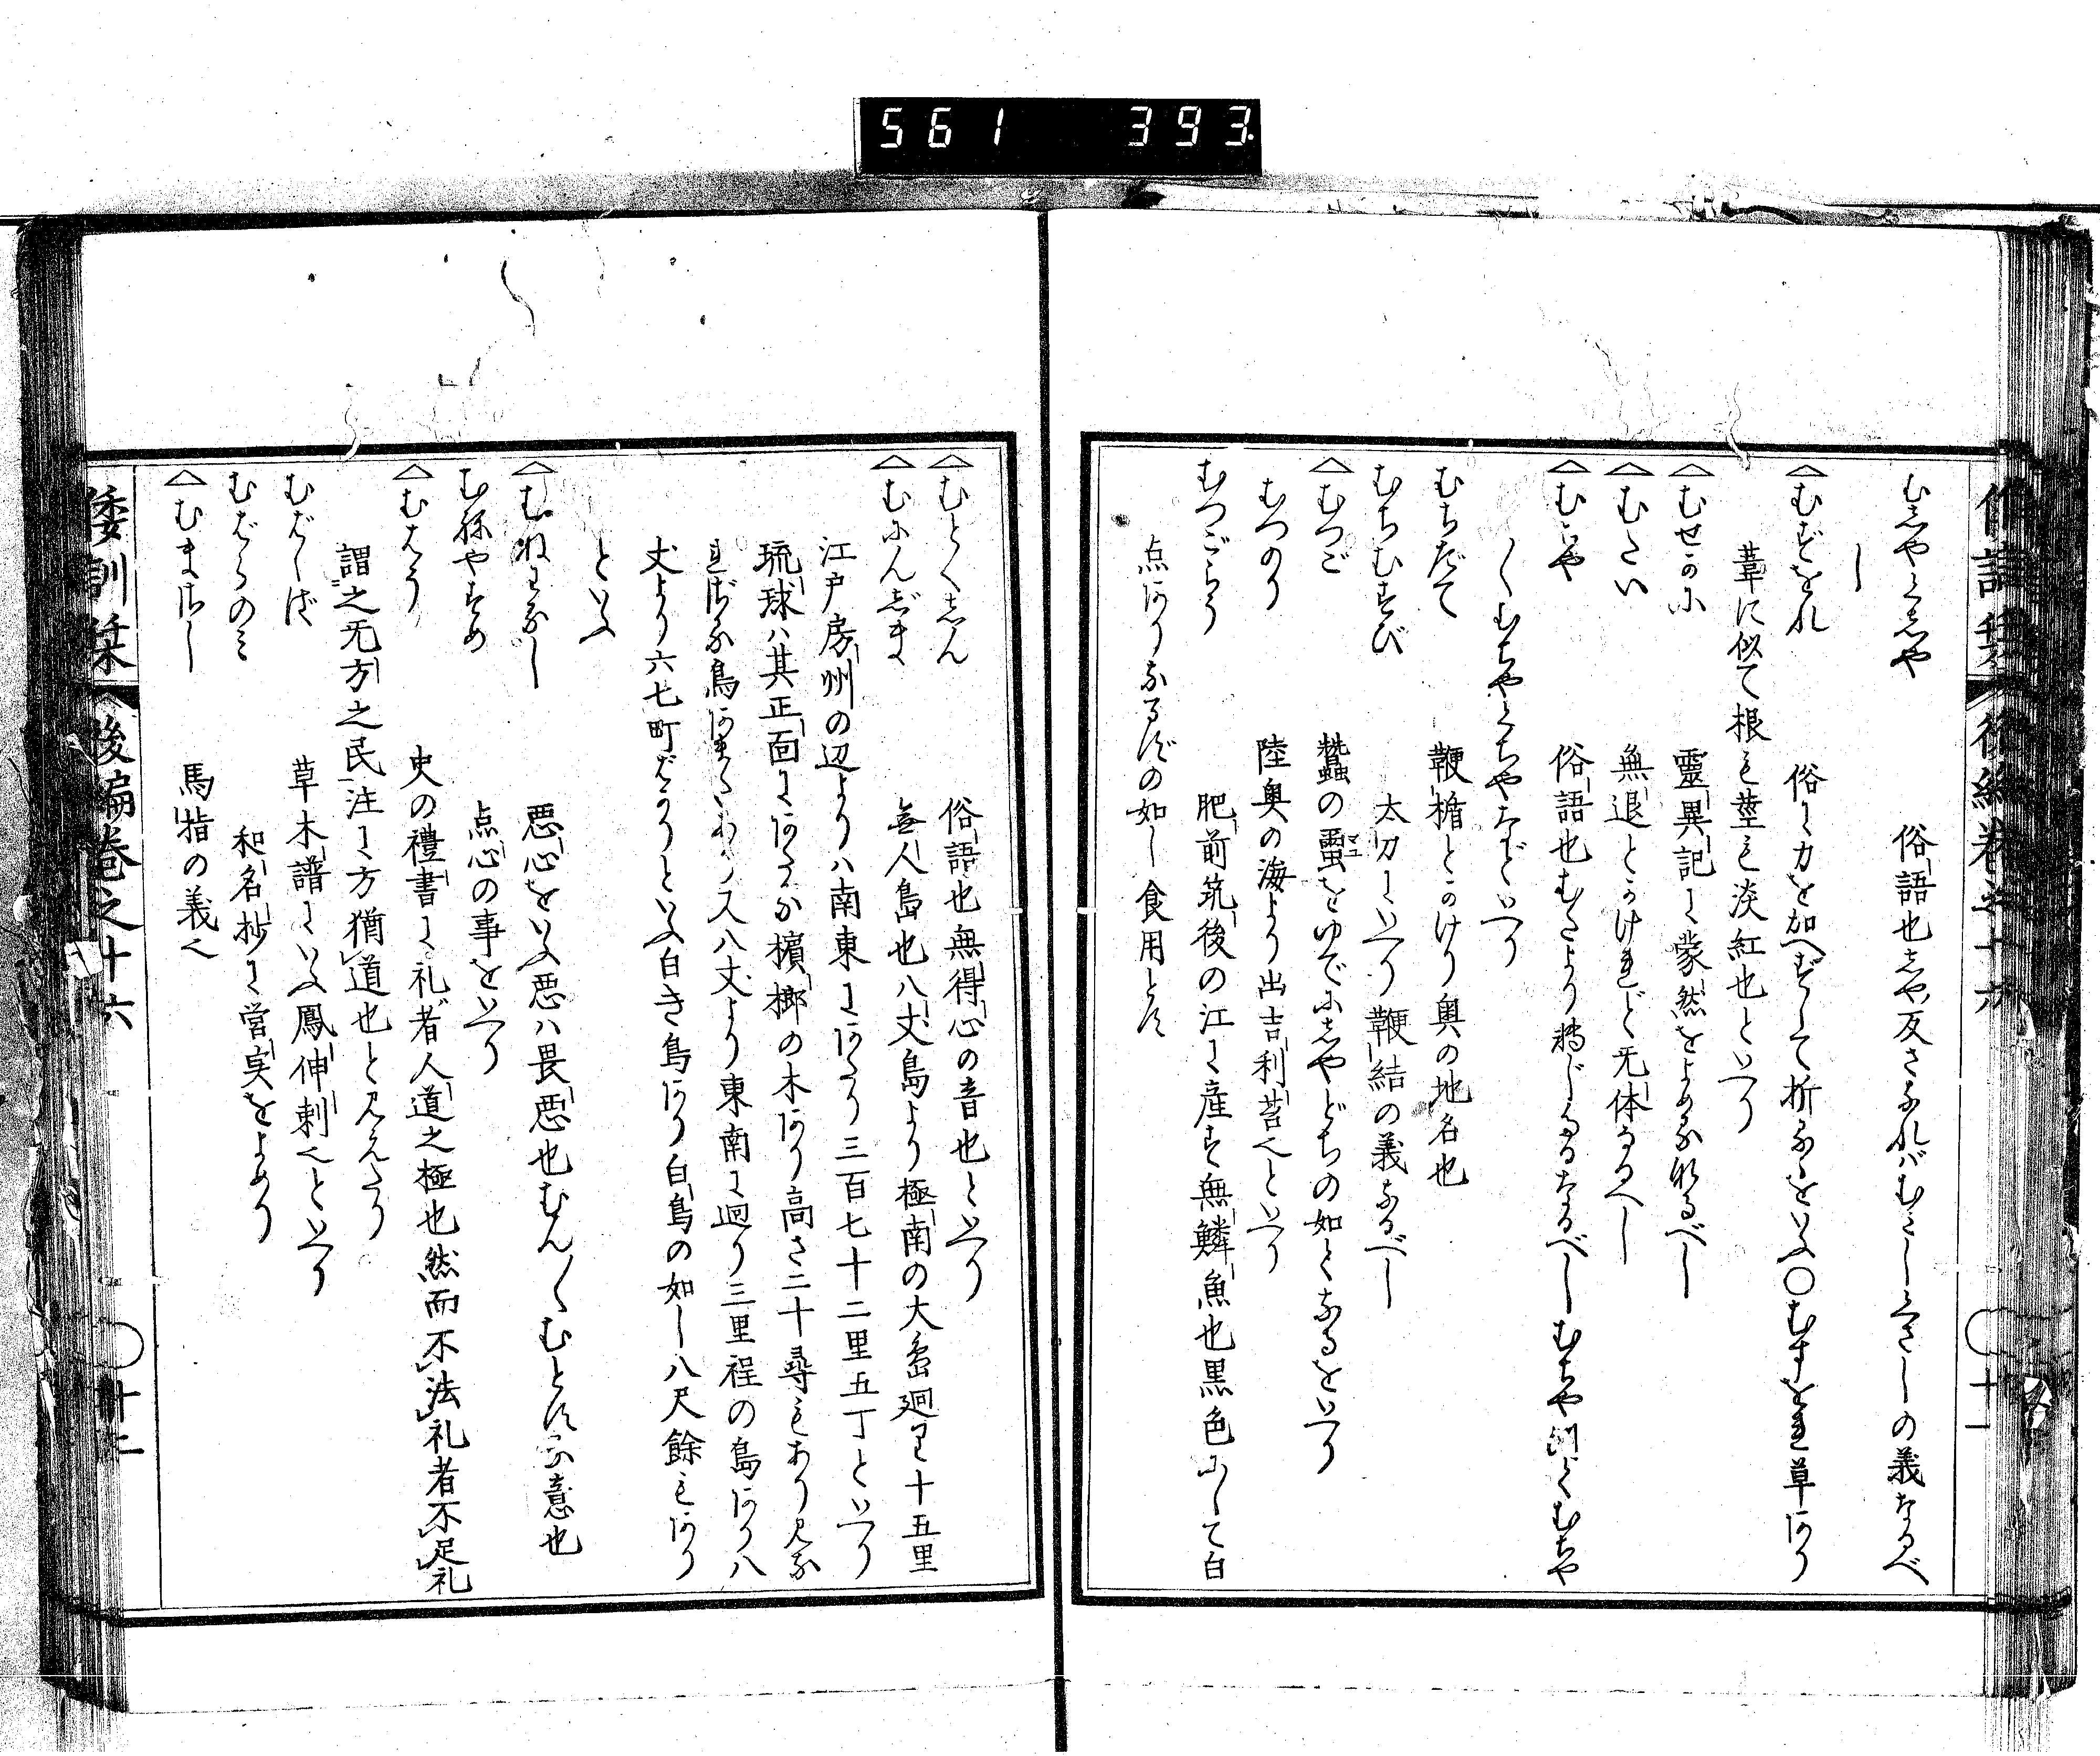 561 393
むしやくしや 俗語也しや反さなれバむさしくさしの義なるべ
し
むずをれ 俗に力を加へずして折るゝをいふ○むすを連草あり
葦に似て根も莖も淡紅也といへり
むせかに 靈異記に蒙然をよめる
むたい 無退とかけれど无体なるべし
むちや 俗語也むさより轉じたるなるべしむちや くむちや
〱むちやくちやなどいへり
むちだて 鞭楯とかけり奥の地名也
むちむすび 太刀にいへり鞭結の義なるべし
むつご 蠶の蠒をゆでにしやどちの如くなるをいへり
マユ
むつのり 陸奥の海より出吉利苔へといへり
むつごらう 肥前筑後の江に産す無鱗魚也黒色にして白
点ありなるずの如し食用とす
むとくしん 俗語也無得心の音也といへり
むにんじま 無人島也八丈島より極南の大島廻り十五里
江戸房州の辺よりハ南東にあたり三百七十二里五丁といへり
琉球ハ其正面にあたる檳榔の木あり高さ二十尋もあり見な
れざる鳥あまたあり又八丈より東南に廻り三里程の島あり八
丈より六七町ばかりといふ白き鳥あり白鳥の如し八尺餘もあり
といふ
むねわるし 悪心をいふ悪ハ畏悪也むん〱むとする意也
むねやすめ 点心の事をいへり
むはう 史の禮書に礼者人道之極也然而不法礼者不足礼
謂之无方之民注に方猶道也と見えたり
むばしば 草木譜にいふ鳳伸刺へといへり
むばらのミ 和名抄に営実をよめり
むまさし 馬指の義へ
倭訓栞 後編巻之十六 十二